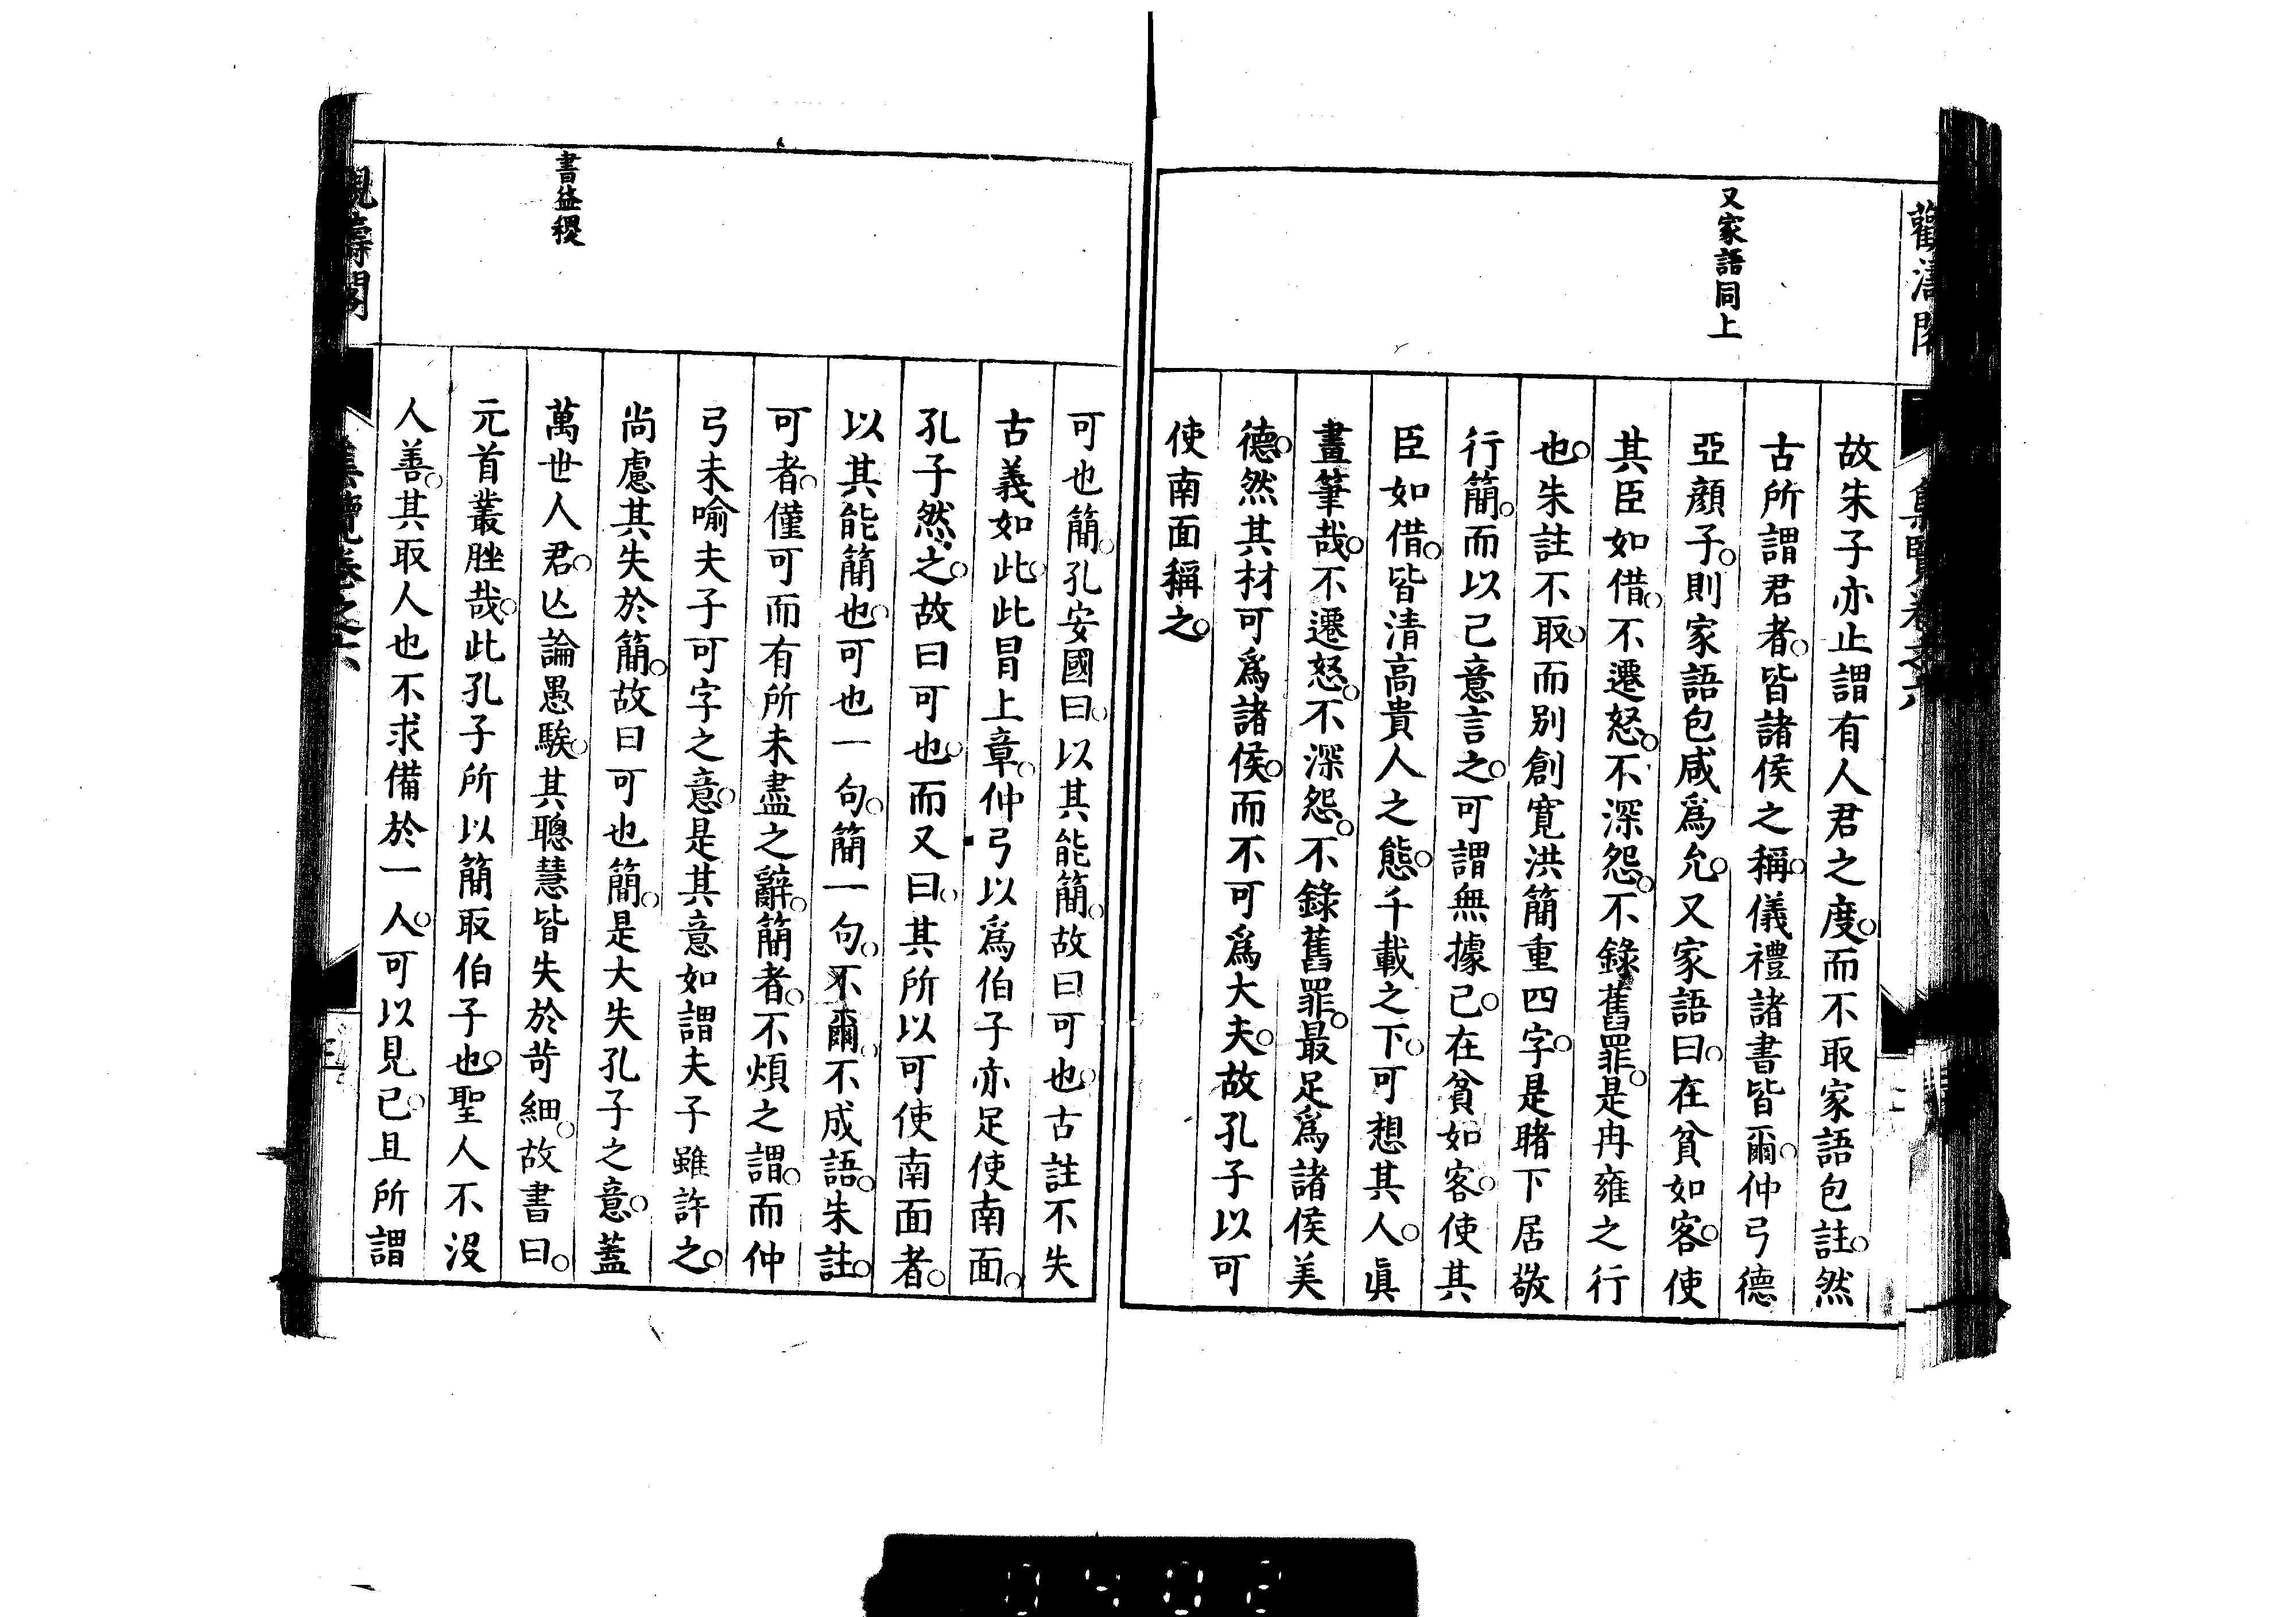 又家語同上
故朱子亦止謂有人君之度。而不取家語包註。然
古所謂君者。皆諸侯之稱。儀禮諸書皆爾。仲弓德
亞顏子。則家語包咸爲允。又家語曰。在貧如客。使
其臣如借。不遷怒。不深怨。不錄舊罪。是冉雍之行
也。朱註不取。而別創寬洪簡重四字。是睹下居敬
行簡。而以己意言之。可謂無據已。在貧如客。使其
臣如借。皆清高貴人之態。千載之下。可想其人。眞
畫筆哉。不遷怒。不深怨。不錄舊罪。最足爲諸侯美
德。然其材可爲諸侯。而不可爲大夫。故孔子以可
使南面稱之。
書益稷
可也簡。孔安國曰。以其能簡。故曰可也。古註不失
古義如此。此冒上章。仲弓以爲伯子亦足使南面。
孔子然之。故曰可也。而又曰。其所以可使南面者。
以其能簡也。可也一句。簡一句。不爾。不成語。朱註。
可者。僅可而有所未盡之辭。簡者。不煩之謂。而仲
弓未喻夫子可字之意。是其意如謂夫子雖許之。
尚慮其失於簡。故曰可也簡。是大失孔子之意。蓋
萬世人君。亡論愚騃。其聰慧皆失於苛細。故書曰。
元首叢脞哉。此孔子所以簡取伯子也。聖人不沒
人善。其取人也不求備於一人。可以見已。且所謂